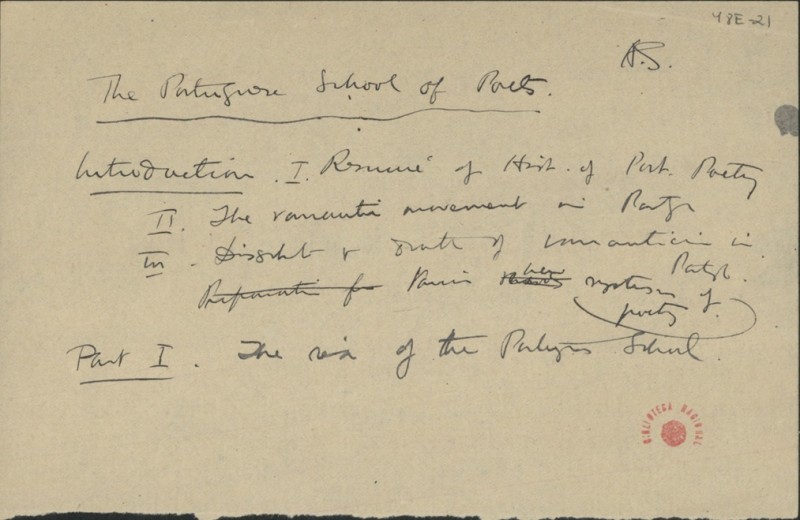 48E-21
A.S.
The Portuguese School of Poets.
Introduction. I. Resumé of Hist. of Port. Poetry
II. The romantic movement in Portgl
III. Dissolut & death of romanticism in Portgl.
Preparation for new systems of
poetry.
Part I. The rise of the Portugues School.
BIBLIOTECA NACIONAL